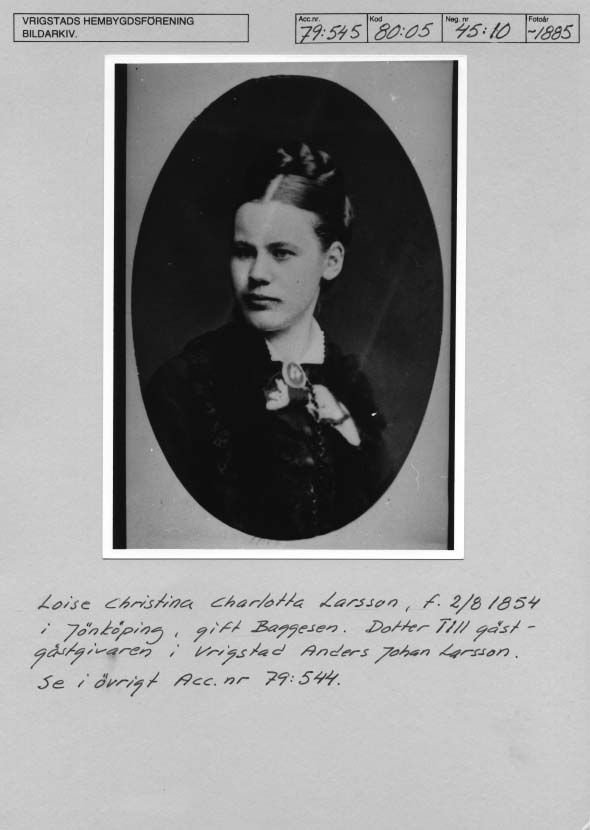 VRIGSTADS HEMBYGDSFÖRENING
BILDARKIV.
Acc.nr. 79:545 Kod 80:05 Neg. nr 45:10 Fotoår ~1885
Loise Christina Charlotta Larsson, f. 2/8 1854
i Jönköping, gift Baggesen. Dotter Till gäst-
gästgivaren i Vrigstad Anders Johan Larsson.
Se i övrigt Acc.nr 79:544.